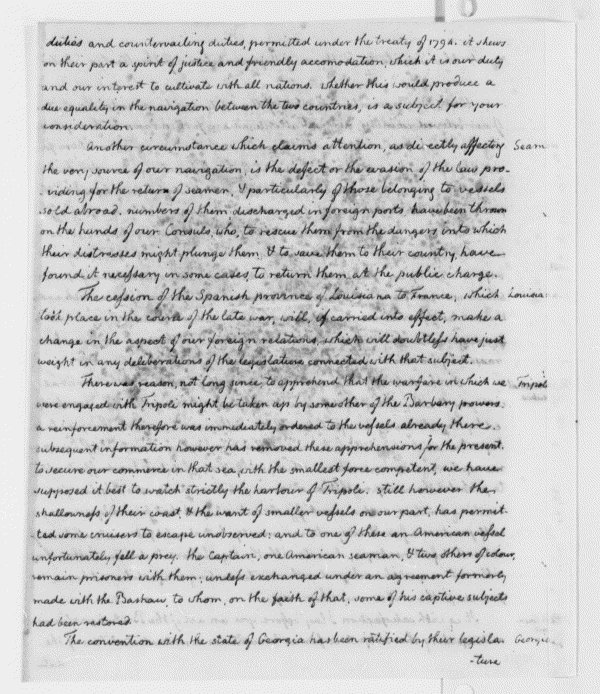 duties and countervailing duties, permitted under the treaty of 1794. it shews
on their part a spirit of justice and friendly accomodation, which it is our duty
and our interest to cultivate with all nations. whether this would produce a
due equality in the navigation between the two countries, is a subject for your
consideration.
Another circumstance which claims attention, as directly affecting Seam
the very source of our navigation, is the defect or the evasion of the law pro-
-viding for the return of seamen, & particularly of those belonging to vessels
sold abroad. numbers of them discharged in foreign ports have been thrown
on the hands of our Consuls, who, to rescue them from the dangers into which
their distresses might plunge them, & to save them to their country, have
found it necessary in some cases, to return them at the public charge.
The cession of the Spanish province of Louisiana to France, which Louisia
took place in the course of the late war, will, if carried into effect, make a
change in the aspect of our foreign relations, which will doubtless have just
weight in any deliberations of the legislature connected with that subject.
There was reason, not long since, to apprehend that the warfare in which we Tripol
were engaged with Tripoli might be taken up by some other of the Barbary powers.
a reinforcement therefore was immediately ordered to the vessels already there.
subsequent information however has removed these apprehensions for the present.
to secure our commerce in that sea, with the smallest force competent, we have
supposed it best to watch strictly the harbour of Tripoli. still however the
shallowness of their coast, & the want of smaller vessels on our part, has permit-
-ted some cruisers to escape unobserved: and to one of these an American vessel
unfortunately fell a prey. the Captain, one American seaman, & two others of colour,
remain prisoners with them; unless exchanged under an agreement formerly
made with the Bashaw, to whom, on the faith of that, some of his captive subjects
had been restored.
The convention with the state of Georgia has been ratified by their legisla- Georgia
-ture